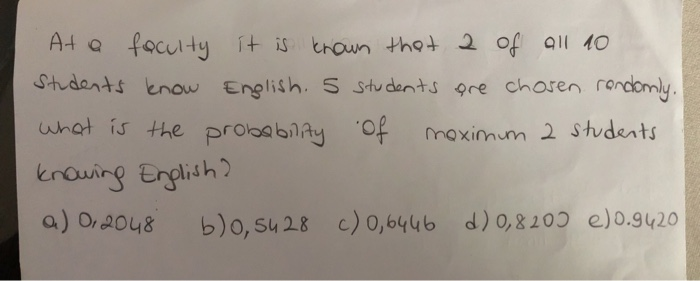 At a faculty it is known that 2 of all 10
students know English. 5 students are chosen randomly.
what is the probability of maximum 2 students
knowing English?
a) 0,2048 b) 0,5428 c) 0,6446 d) 0,8203 e) 0.9420